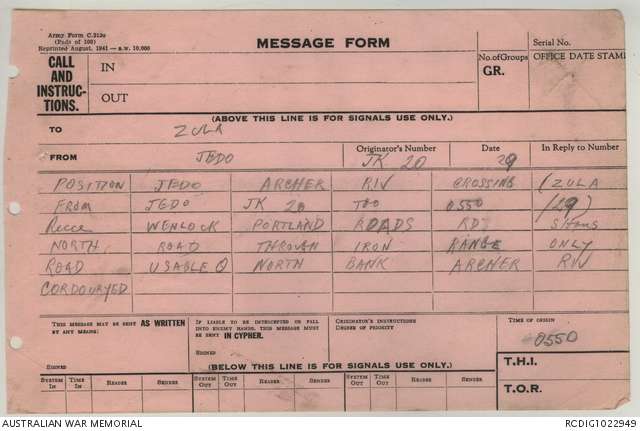 Army Form C.2136
(Pads of 100)
Reprinted August, 1941—s.w. 10,000
MESSAGE FORM
Serial No.
CALL AND INSTRUC-TIONS.
IN
OUT
No. of Groups
GR.
OFFICE DATE STAMP
(ABOVE THIS LINE IS FOR SIGNALS USE ONLY.)
TO ZULA
FROM JEDO Originator's Number JK 20 Date 29 In Reply to Number
POSITION JEDO ARCHER RIV CROSSING (ZULA
FROM JEDO JK 20 TOO 0550 /29)
Recce WENLOCK PORTLAND ROADS RD
NORTH ROAD THROUGH IRON RANGE ONLY
ROAD USABLE NORTH BANK ARCHER RIV
CORDOURYED
THIS MESSAGE MAY BE SENT AS WRITTEN BY ANY MEANS:
SIGNED
IF LIABLE TO BE INTERCEPTED OR FALL INTO ENEMY HANDS, THIS MESSAGE MUST BE SENT IN CIPHER.
SIGNED
ORIGINATOR'S INSTRUCTIONS
DEGREE OF PRIORITY
TIME OF ORIGIN
0550
(BELOW THIS LINE IS FOR SIGNALS USE ONLY.)
T.H.I.
T.O.R.
SYSTEM IN TIME IN READER SENDER SYSTEM OUT TIME OUT READER SENDER SYSTEM OUT TIME OUT READER SENDER
AUSTRALIAN WAR MEMORIAL
RCDIG1022949